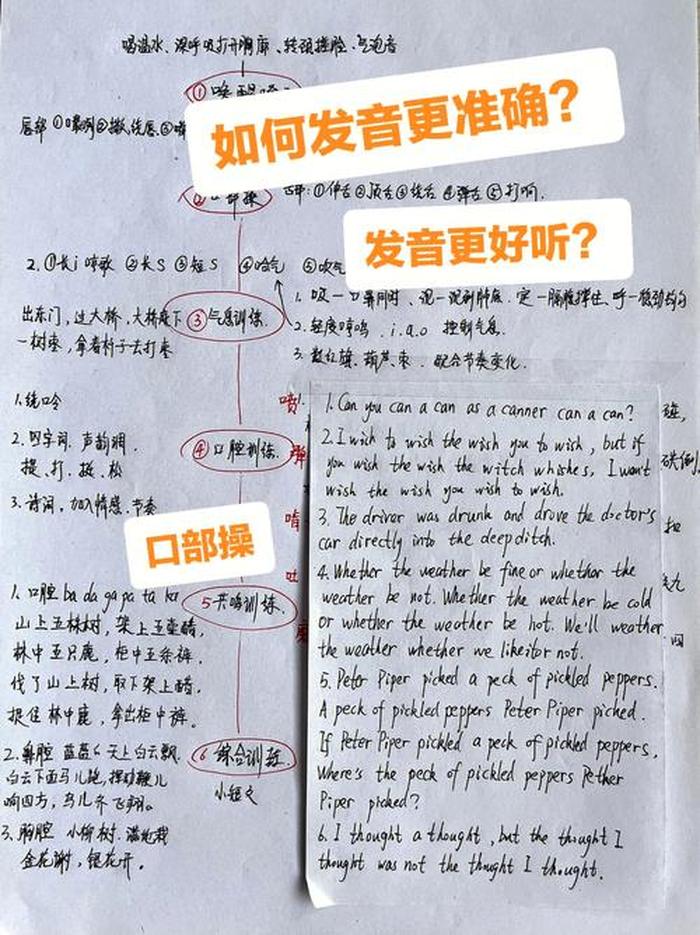 喝温水、深呼吸打开胸廓、转颈揉脸、气泡音
①唤醒
如何发音更准确？
唇部 ①噘咧②撇、绕唇、③
②口部操
舌部：①伸舌②顶舌③绕舌④弹舌⑤打响.
发音更好听？
2. ①长i哼歌 ②长S ③短S ④哈气 ⑤吹气
1. 吸一口鼻同时、
出东门，过大桥，大桥底下
一树枣，拿着杆子去打枣
③气息训练.
2. 轻度哼鸣. i.a.o 控制气息.
3. 数红旗、葫芦、枣. 配合节奏变化.
1. 绕口令
2. 四字词. 声韵调.
提、打、挺、松
3. 诗词，加入情感、节奏
④口腔训练.
喷
弹
口部操
1. 口腔 ba da ga pa ta ka
山上五棵树，架上五壶醋，
林中五只鹿，柜中五条裤，
伐了山上树，取下架上醋，
捉住林中鹿，拿出柜中裤。
5共鸣训练.
2. 鼻腔 蓝蓝的天上白云飘，
白云下面马儿跑，挥动鞭儿
响四方，鸟儿齐飞翔。
3. 胸腔 小柳树. 满地栽
金花谢，银花开。
⑥综合训练
小短文
1. Can you can a can as a canner can a can?
2. I wish to wish the wish you to wish, but if
you wish the wish the witch whishes, I won't
wish the wish you wish to wish.
3. The driver was drunk and drove the doctor's
car directly into the deep ditch.
4. Whether the weather be fine or whether the
weather be not. Whether the weather be cold
or whether the weather be hot. We'll weather
the weather whether we like it or not.
5. Peter Piper picked a peck of pickled peppers.
A peck of pickled peppers Peter Piper picked.
If Peter Piper pickled a peck of pickled peppers,
Where's the peck of pickled peppers Pether
Piper picked?
6. I thought a thought, but the thought I
thought was not the thought I thought.